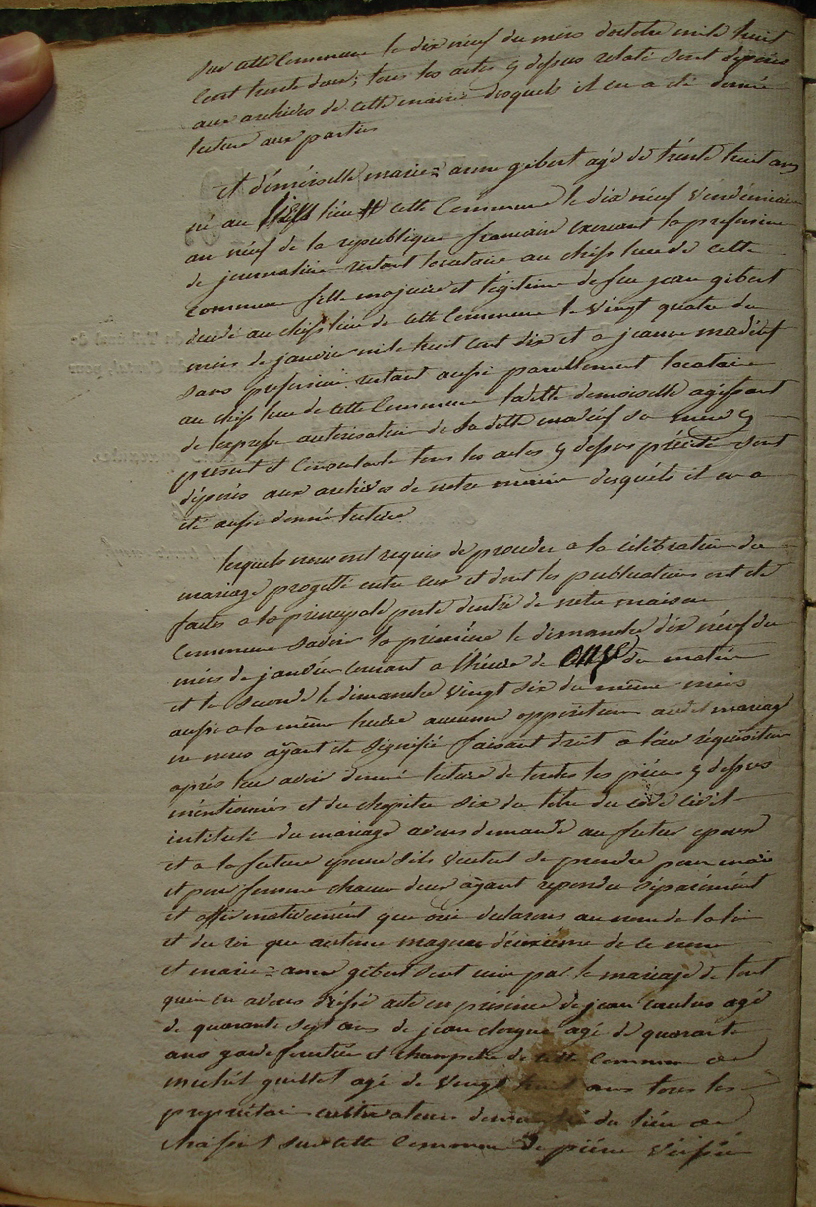 sur cette Commune le dix neuf du mois doctobre mile huit
Cent trente deux; tous les actes y dessus relaté sont déposés
aux archives de cette mairie desquels il en a été donné
lecture aux parties
et démoiselle marie-anne gibert agé de trénte huit ans
né au lieu cette Commune le dix neuf vendémiaire
an neuf de la république francaise exercant la profession
de journaliere restant locataire au chef lieu de cette
commune fille majeure et légitime de feu jean gibert
décédé au chef lieu de cette Commune le vingt quatre du
mois de janvier mile huit cent dix et a jeanne
sans profession restant aussi pareillement locataire
au chef lieu de cette Commune ladite demoiselle agissant
de lexpresse autorisation de sa dite sa mere y
présent et Consentante tous les actes y dessus précité sont
déposés aux archives de notre mairie desquels il en a
été aussi donné lecture
lesquels nous ont requis de proceder a la célébration du
mariage progetté entre eux et dont les publications ont été
faites a la principale porte dentré de notre maison
Commune savoir la premiere le dimanche dix neuf du
mois de janvier courant a lheure de onze du matin
et la seconde le dimanche vingt six du même mois
aussi a la même heure aucune opposition audit mariage
ne nous ayant été signifié faisant droit a leur réquisition
aprés leur avoir donné lecture de toutes les piéces y dessus
méntionnés et du chapitre six du titre du code civil
intitulé du mariage avons demandé au futur epoux
et a la future epouse sils veulent se prendre pour mari
et pour femme chacun deux ayant repondu séparément
et affirmativement que oui declarons au nom de la loi
et du roi que antoine déuxieme de ce nom
et marie-anne gibert sont unis par le mariage de tout
quoi en avons dréssé acte en présence de jean agé
de quarante sept ans de jean clergue agé de quarante
ans garde forétier et champetre de cette Commune de
michel agé de vingt huit ans tous les
proprietaires cultivateurs du lieu de
sur cette Commune de piérre